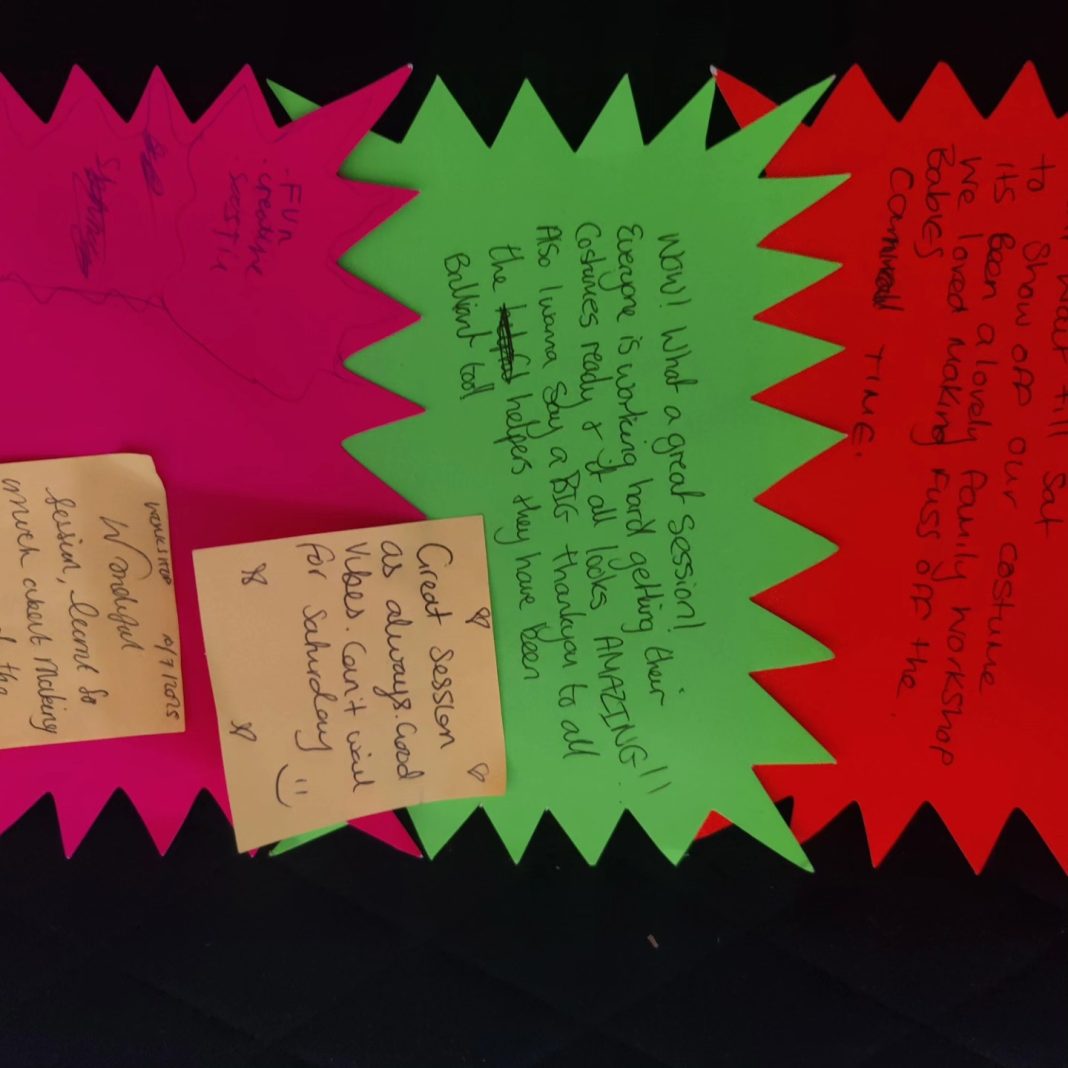 till Sat
to Show off our costume
its been a lovely family workshop
We loved making Fuss off the
Babies
Carnival TIME.
Wow! What a great Session!
Everyone is working hard getting their
Costumes ready & it all looks AMAZING!!
Also I wanna say a BIG thankyou to all
the helpers they have been
Brilliant tool
Great Session
as always. Good
Vibes. Can't wait
for Saturday
. FUN
. creative
WORKSHOP
Wonderful
Session, learnt so
much about making
the